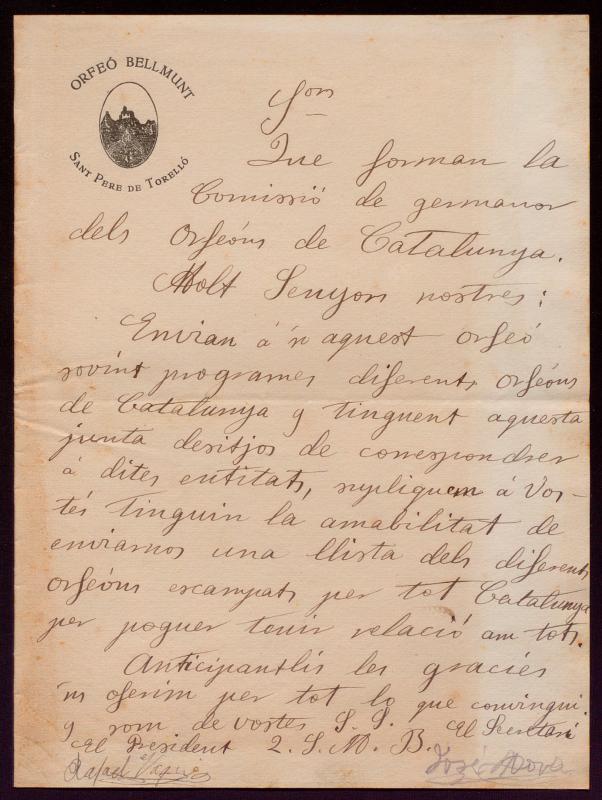 ORFEÓ BELLMUNT
SANT PERE DE TORELLÓ
Sors
Que forman la
Comissió de germanor
dels Orfeóns de Catalunya.
Molt Senyors nostres:
Envian á n aquest orfeó
sovint programes diferents orfeóns
de Catalunya y tinguent aquesta
junta desitjos de correspondrer
á dites entitats, supliquem á Vos-
tés tinguin la amabilitat de
enviarnos una llista dels diferents
orfeóns escampats per tot Catalunya
per poguer tenir relació am tots.
Anticipantlis les gracies
ns oferim per tot lo que convingui.
y som de vostes S. S. El Secretari
El President Q. S. M. B.
Rafael José Nova